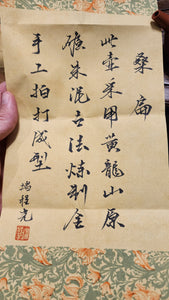 桑扁
此壶采用黄龙山原
矿朱泥古法炼制全
手工拍打成型